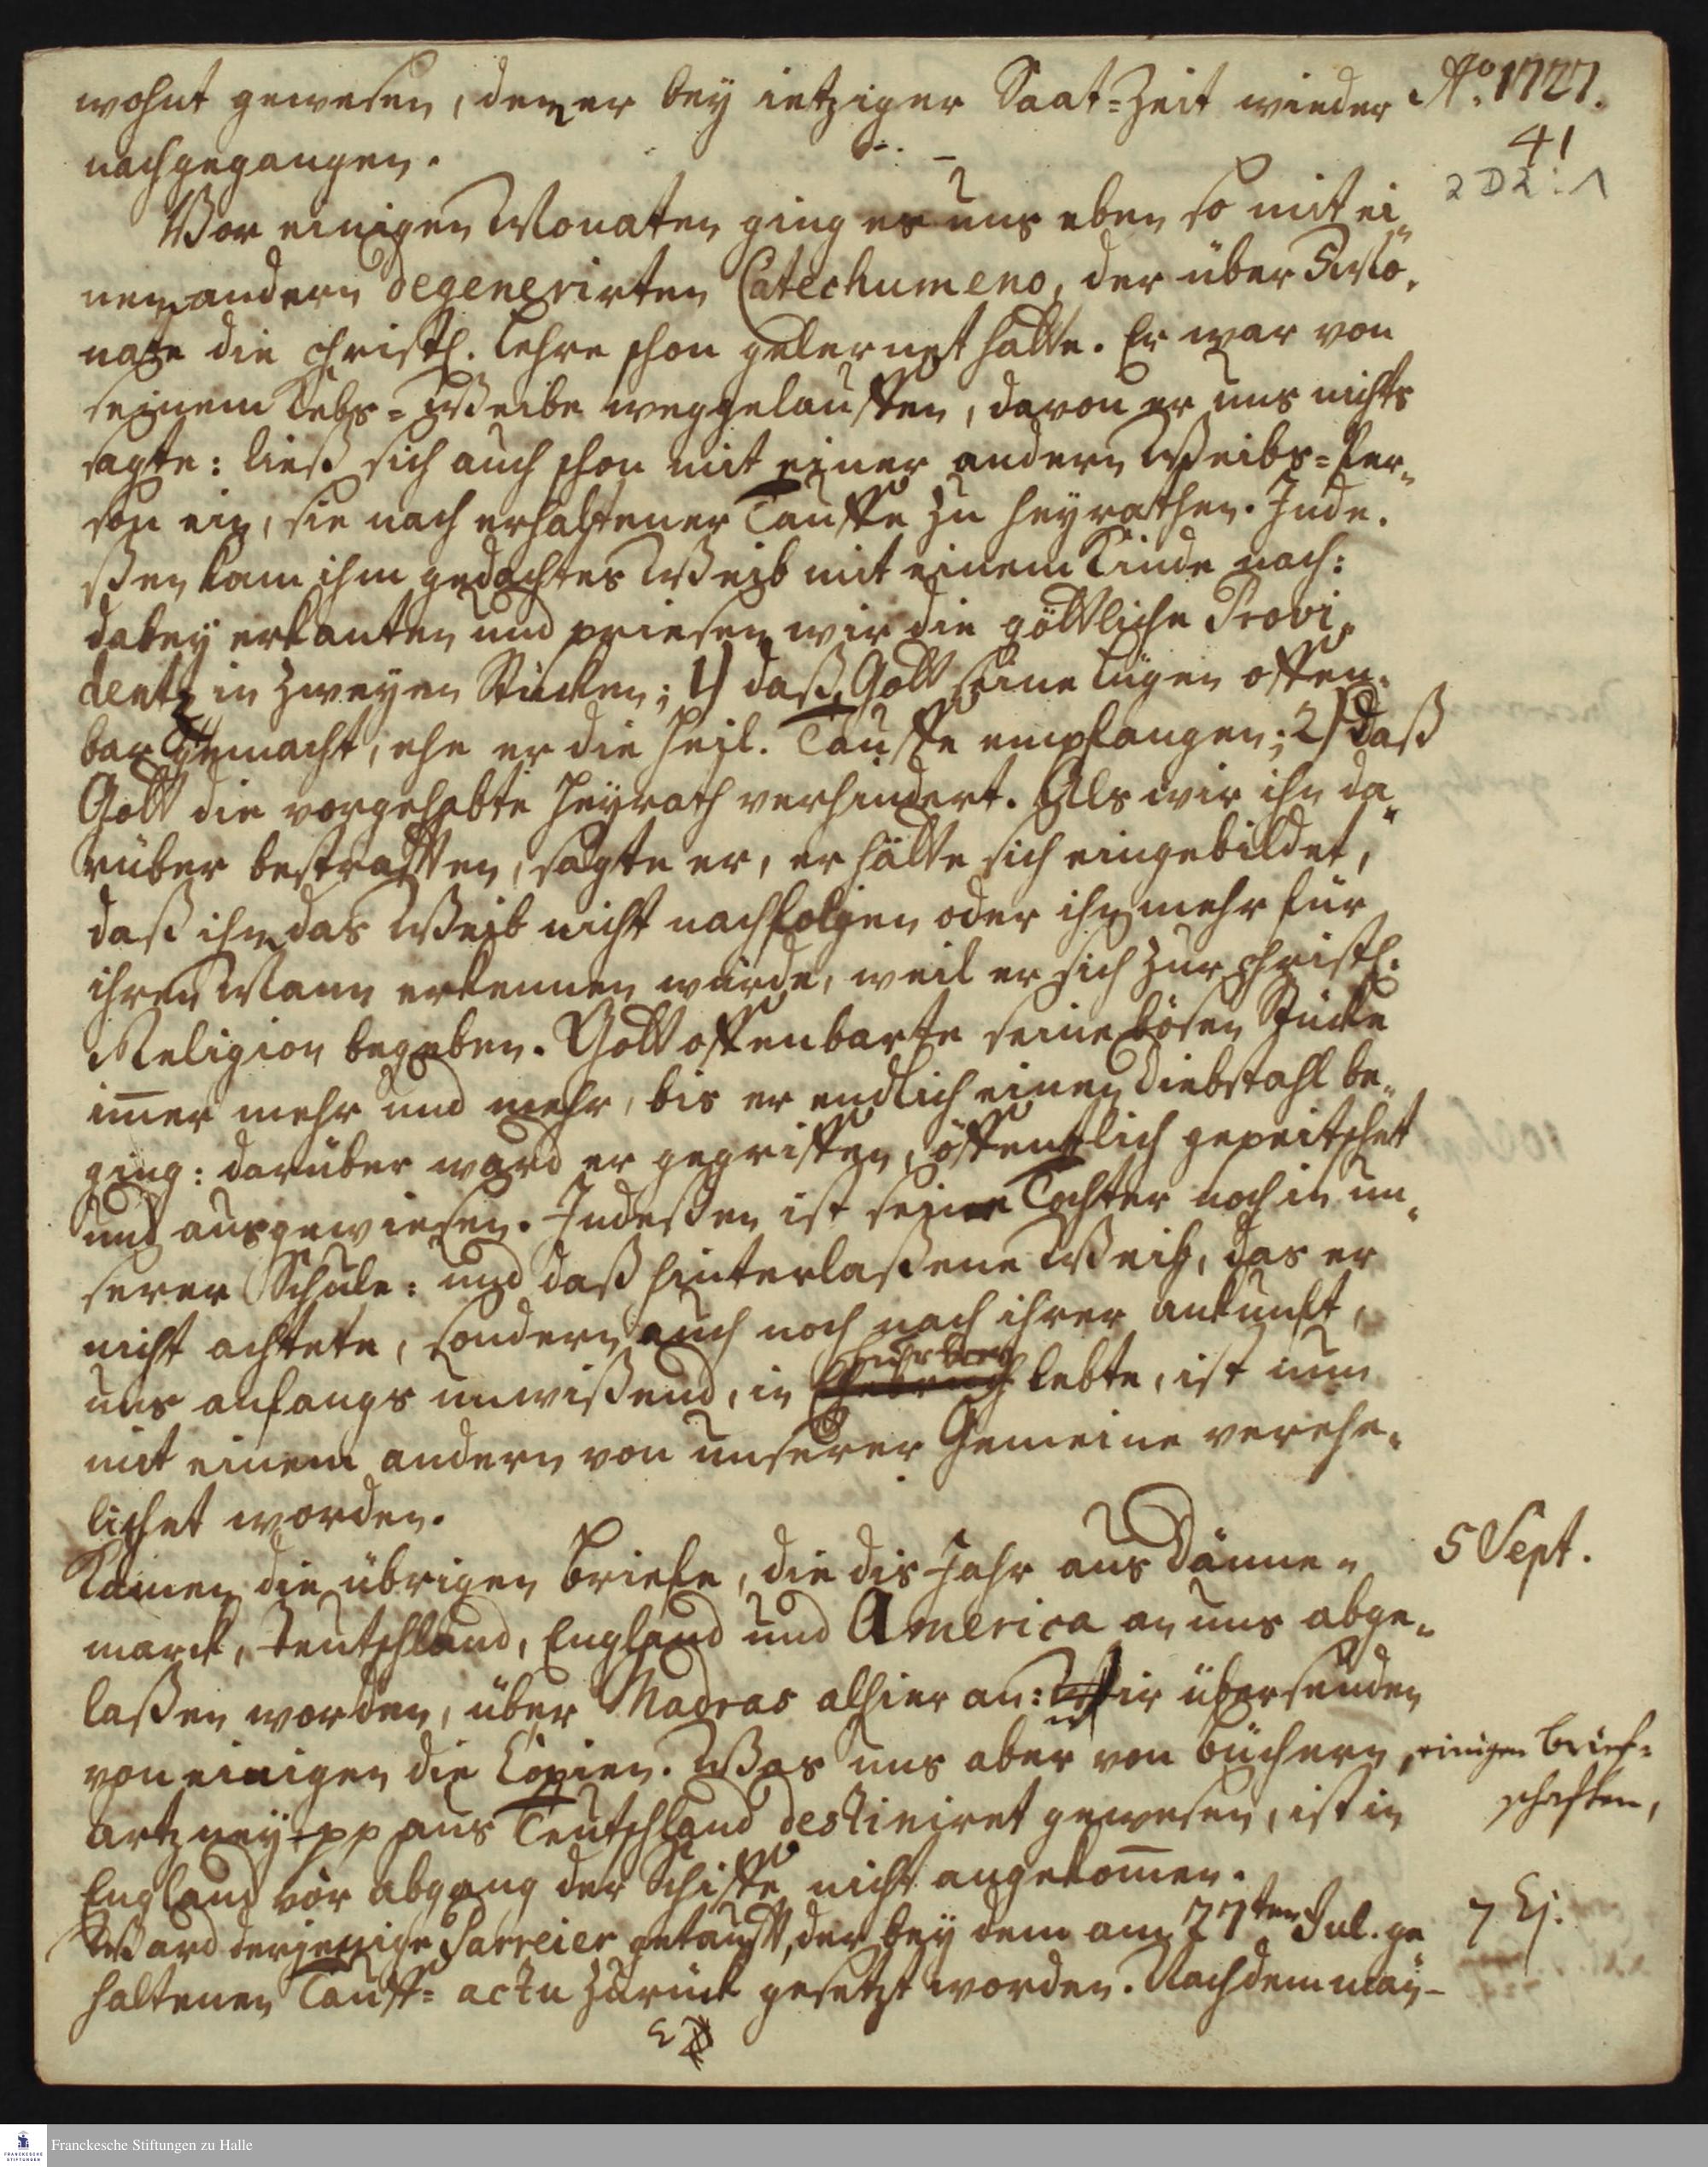 wohnt gewesen, dem er bey ietziger Saat=Zeit wieder
Ao. 1727.
nachgegangen.
41
2 D 2 : 1
Vor einigen Monaten ging es uns eben so mit ei-
nem andern degenerirten Catechumeno, der über 5 Mo-
nate die christl. Lehre schon gelernet hatte. Er war von
seinem Kebs=Weibe weggelauffen, davon er uns nichts
sagte: ließ sich auch schon mit einer andern Weibs=Per-
son ein, sie nach erhaltener Tauffe zu heyrathen. Inde-
ßen kam ihm gedachtes Weib mit einem Kinde nach:
dabey erkanten und priesen wir die göttliche Provi-
dentz in zweyen Stücken; 1) daß Gott seine Lügen offen-
bar gemacht, ehe er die heil. Tauffe empfangen; 2) daß
Gott die vorgehabte Heyrath verhindert. Als wir ihn da-
rüber bestrafften, sagte er, er hätte sich eingebildet,
daß ihm das Weib nicht nachfolgen oder ihn mehr für
ihren Mann erkennen würde, weil er sich zur christl.
Religion begeben. Gott offenbarte seine bösen Stücke
immer mehr und mehr, bis er endlich einen Diebstahl be-
ging: darüber ward er gegriffen, öffentlich gepeitschet
und ausgewiesen. Indeßen ist seine Tochter noch in un-
serer Schule: und daß hinterlaßene Weib, das er
nicht achtete, sondern auch noch nach ihrer ankunft,
uns anfangs unwißend, in Ehebruch lebte, ist nun
mit einem andern von unserer Gemeine verehe-
lichet worden.
Kamen die übrigen Briefe, die dis Jahr aus Dänne-
5 Sept.
marck, Teutschland, England und America an uns abge-
laßen worden, über Madras alhier an: Wir übersenden
von einigen die Copien. Was uns aber von Büchern, einigen Brief-
schafften,
artzney pp aus Teutschland destiniret gewesen, ist in
England vor abgang der Schiffe nicht angekommen.
Ward derjenige Parreier getaufft, der bey dem am 27ten Jul. ge
7 Ej.
haltenen Tauff=actu zurück gesetzt worden. Nachdem man
Franckesche Stiftungen zu Halle